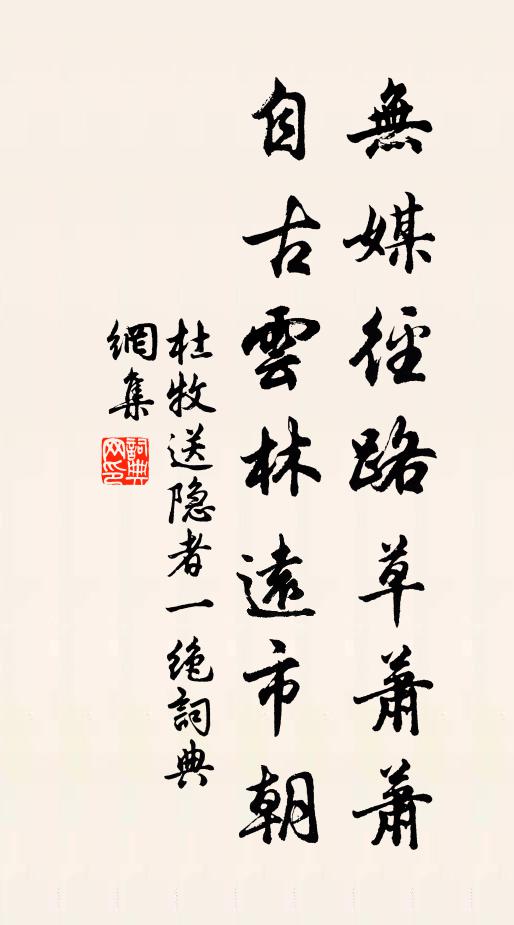 無媒徑路草蕭蕭
自古雲林遠市朝
杜牧送隐者一绝詞典
網集
詞典网印